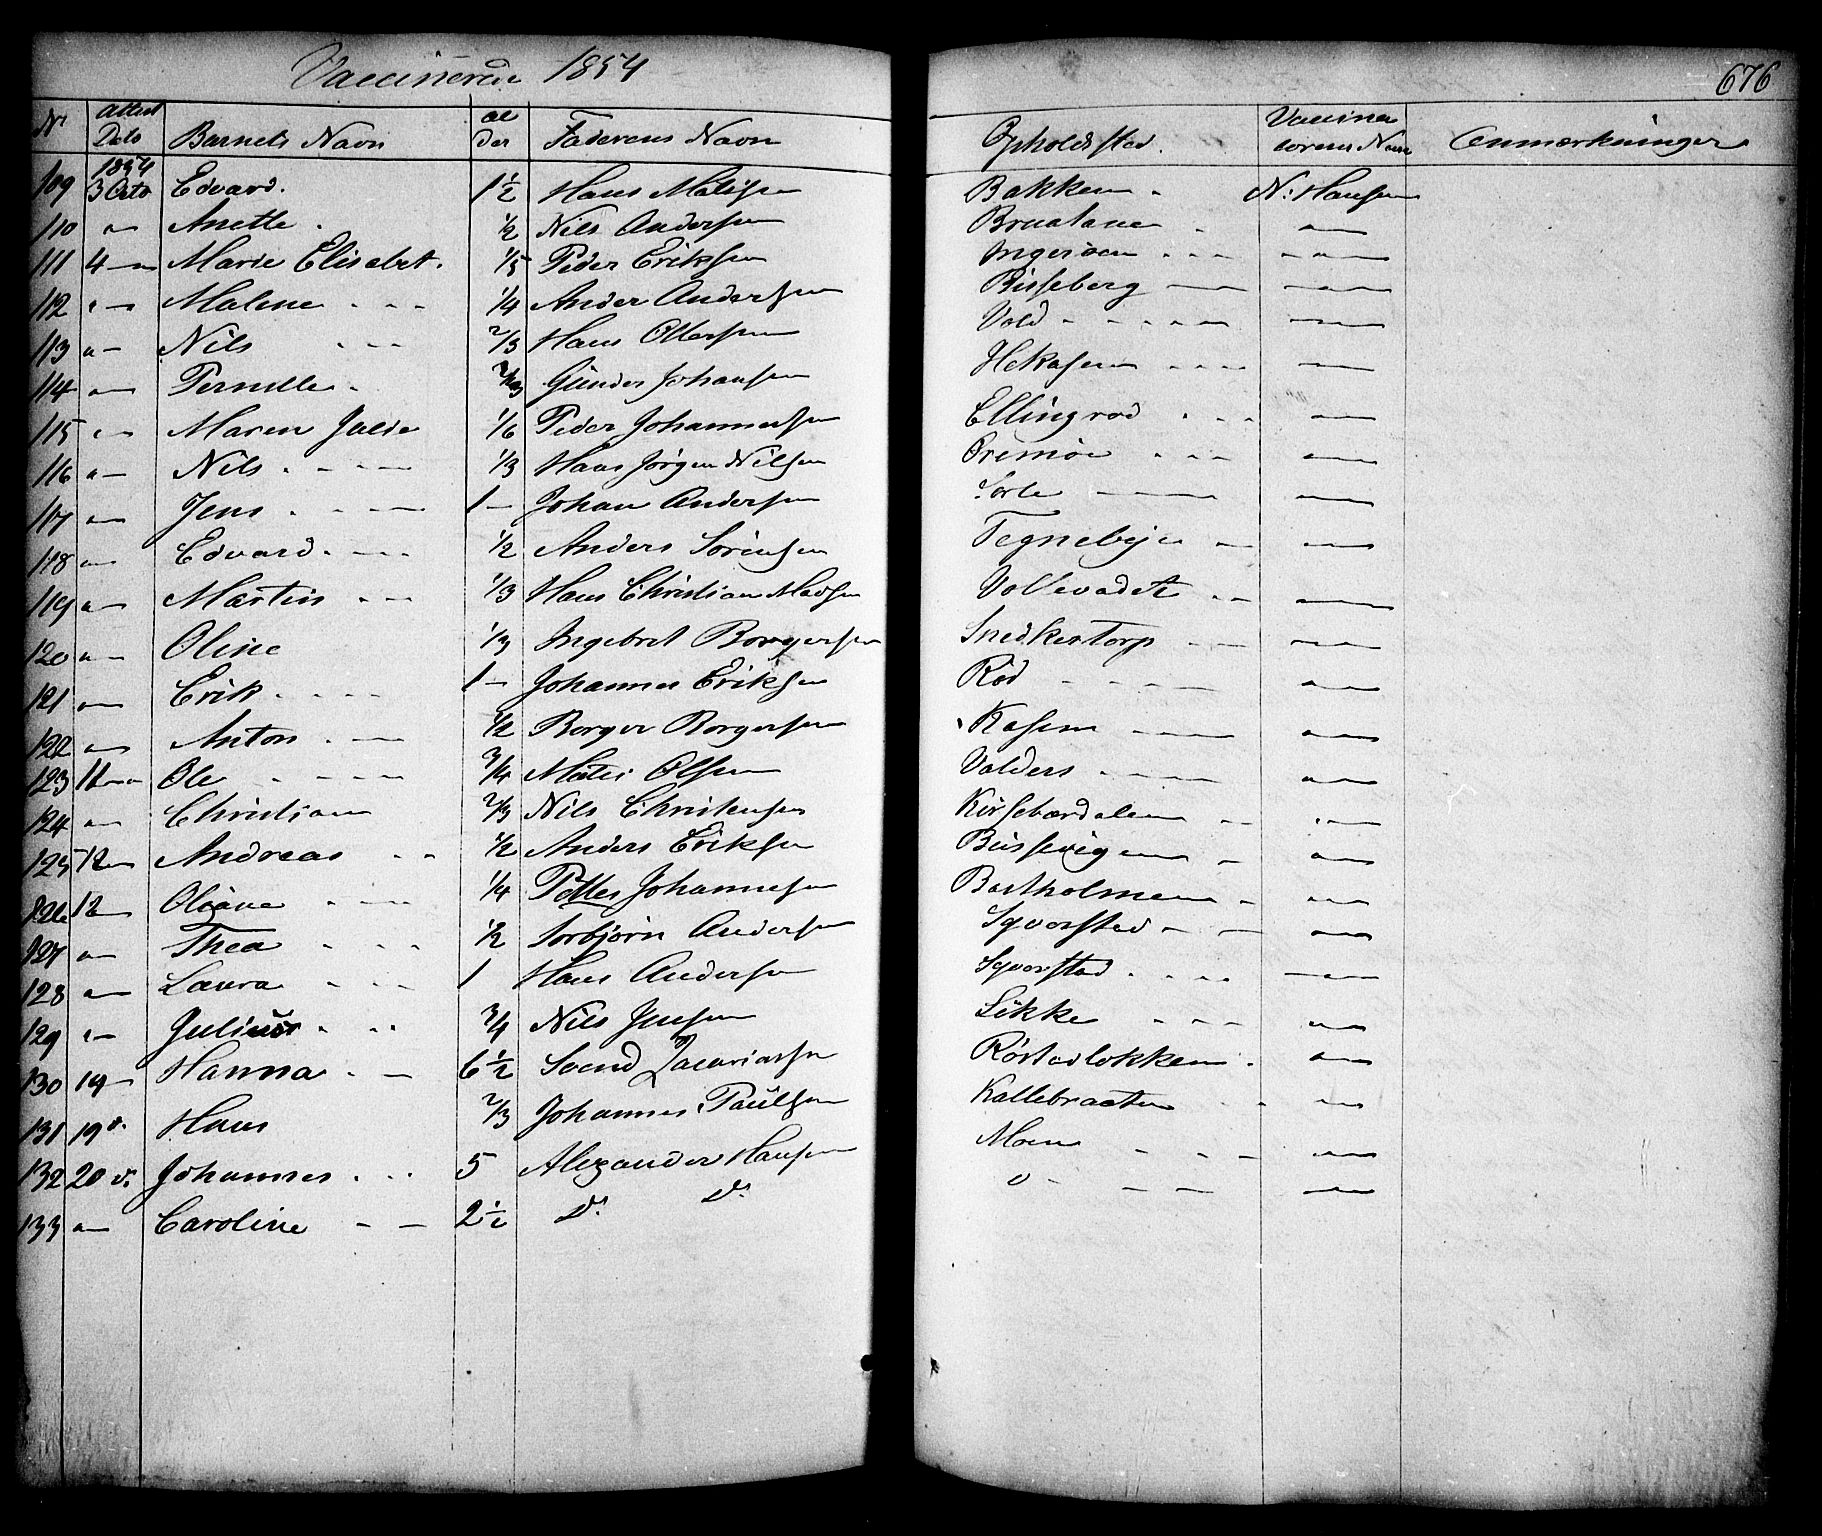 Vaccinerede 1854
676
Nr Attest Dato Barnets Navn Alder Faderens Navn Opholdssted. Vaccinatorens Navn Anmærkninger
1854
109 3 Octo Edvard. 1½ Hans Matisen Bakken N: Hansen
110 " Anette. ½ Nils Andersen Braatane "
111 4 " Marie Elisabet. 1/5 Peder Eriksen "
112 " Malene ¼ Ander Andersen Bisseberg "
113 " Nils 2/3 Hans Ottersen Vold "
114 " Pernille. Günder Johansen "
115 " Maren Julie 1/6 Peder Johannesen Ellingrød "
116 " Nils 1/3 Hans Jörgen Nilsen Oremoe "
117 " Jens 1 Johan Andersen Sorte "
118 " Edvard ½ Anders Sörensen Tegnebyen "
119 " Martin 1/3 Hans Christian Madsen Vollevadet "
120 " Oline 1/3 Ingebret Borgersen Snedkertorp "
121 " Erik 1 Johannes Eriksen Röd "
122 " Anton ½ Borger Borgersen Kasen "
123 11 " Ole ¾ Matis Olsen Valders "
124 " Christian 2/3 Nils Christensen Kirsebærdalen "
125 12 Andreas ½ Anders Eriksen Bussevigen "
126 12 Oliane ¼ Petter Johannesen Bartholmen "
127 " Thea ½ Torbjörn Andersen Syverstad "
128 " Laura 1 Hans Andersen Syverstad "
129 " Julius ¾ Nils Jensen Likke "
130 19 Hanna 6½ Svend Zacariassen Röstadlökken "
131 19 d. Hans 2/3 Johannes Paülsen Kallebraaten "
132 20 d. Johannes 5 Alexander Hansen Moen "
133 " Caroline 2½ D. D. "